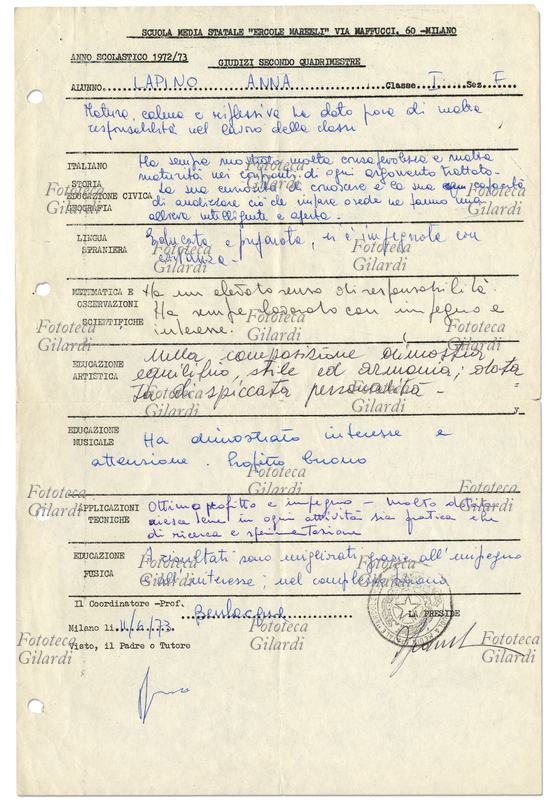 SCUOLA MEDIA STATALE "ERCOLE MARELLI" VIA MAFFUCCI. 60 -MILANO
ANNO SCOLASTICO 1972/73
GIUDIZI SECONDO QUADRIMESTRE
ALUNNO LAPINO ANNA Classe I Sez F
Matura, calma e riflessiva ha dato prova di molta
responsabilità nel lavoro della classe
ITALIANO
STORIA
EDUCAZIONE CIVICA
GEOGRAFIA
Ha sempre mostrato molta consapevolezza e molta
maturità nei confronti di ogni argomento trattato.
La sua curiosità di conoscere e la sua capacità
di analizzare ciò che impara e vede ne fanno una
allieva intelligente e aperta.
LINGUA
SPRANIERA
Educata e preparata, si è impegnata con
costanza.
METEMATICA E
OSSERVAZIONI
SCIENTIFICHE
Ha un elevato senso di responsabilità.
Ha sempre lavorato con impegno e
interesse.
EDUCAZIONE
ARTISTICA
Nella composizione dimostra
equilibrio, stile ed armonia; dotata
di spiccata personalità -
EDUCAZIONE
MUSICALE
Ha dimostrato interesse e
attenzione. Profitto buono
APPLICAZIONI
TECNICHE
Ottimo profitto e impegno - Molto dotata
riesce bene in ogni attività sia pratica che
di ricerca e sperimentazione
EDUCAZIONE
FUSICA
I risultati sono migliorati grazie all'impegno
e all'interesse; nel complesso buono
Il Coordinatore -Prof.
LA PRESIDE
Milano li 11/6/73
Visto, il Padre o Tutore
Fototeca
Gilardi